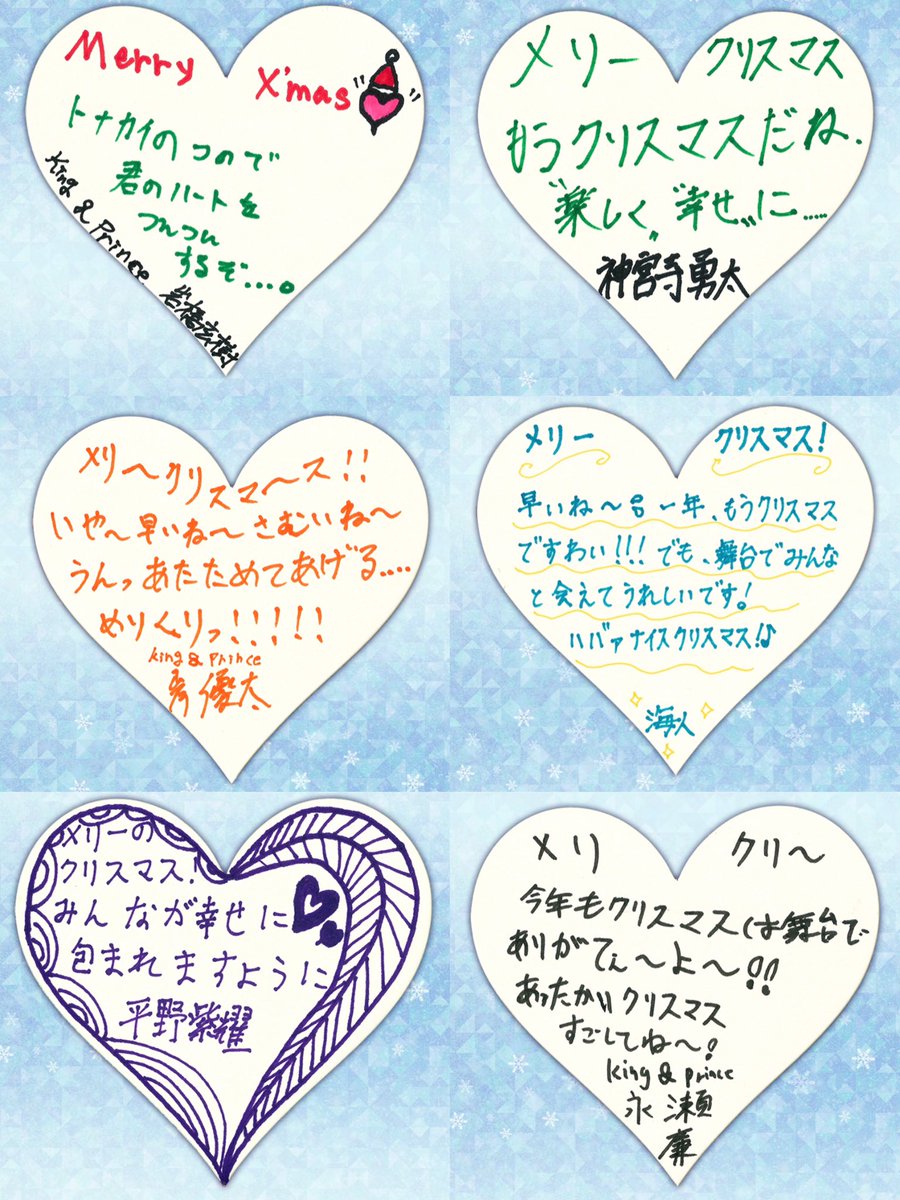 Merry X'mas
トナカイのつので
君のハートを
つんつん
するぞ....。
King & Prince 岩橋玄樹
メリー クリスマス
もうクリスマスだね、
"楽しく" "幸せ"に.....
神宮寺勇太
メリ〜クリスマ〜ス!!
いや〜早いね〜さむいね〜
うんっあたためてあげる....
めりくりっ!!!!!
King & Prince
岸優太
メリー クリスマス!
早いね〜 一年、もうクリスマス
ですわい!!!でも、舞台でみんな
と会えてうれしいです!
ハバァナイスクリスマス!♪
海人
メリーの
クリスマス!
みんなが幸せに
包まれますように
平野紫耀
メリ クリ〜
今年もクリスマスは舞台で
ありがてぇ〜よ〜!!
あったかいクリスマス
すごしてね〜!
King & Prince
永瀬
廉